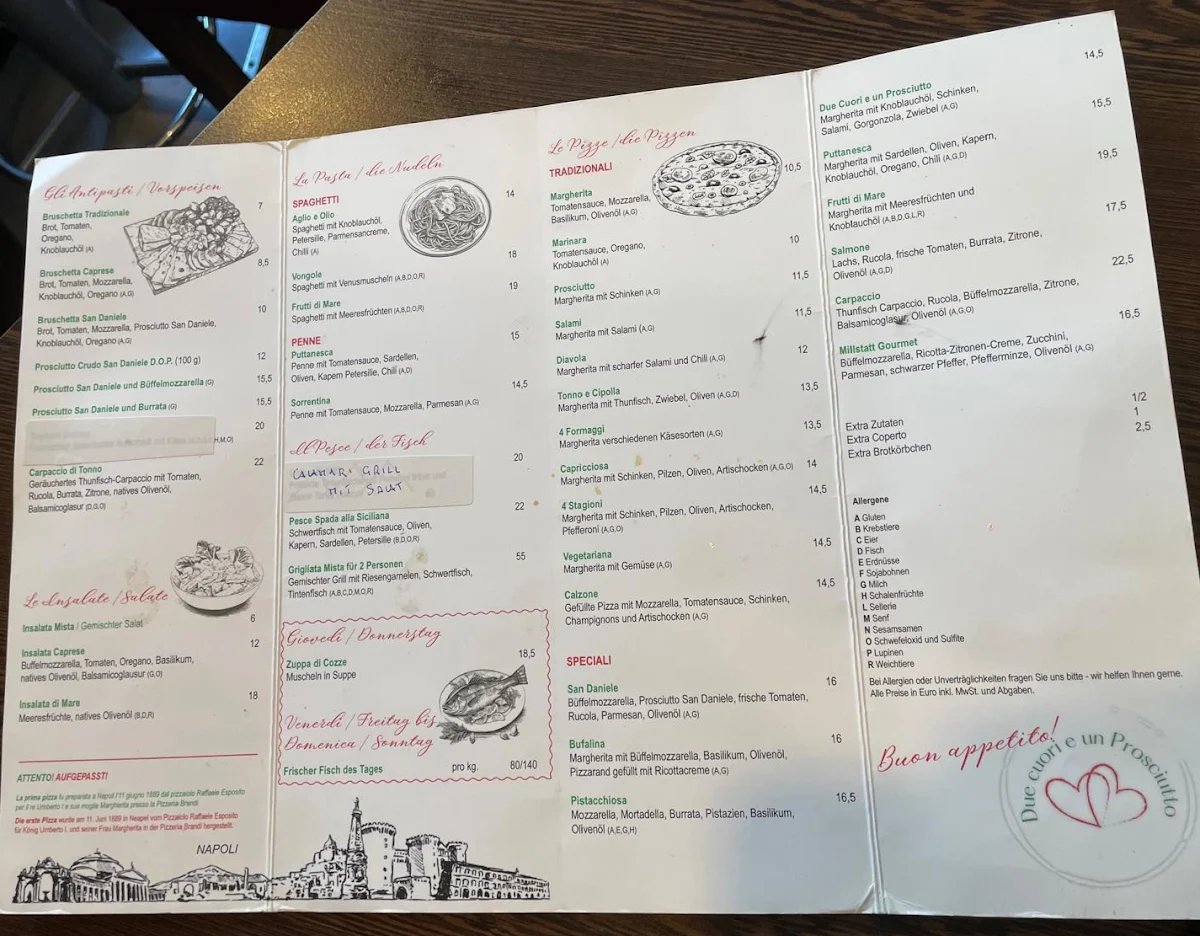 Gli Antipasti / Vorspeisen
Bruschetta Tradizionale 7
Brot, Tomaten,
Oregano,
Knoblauchöl (A)
Bruschetta Caprese 8,5
Brot, Tomaten, Mozzarella,
Knoblauchöl, Oregano (A,G)
Bruschetta San Daniele 10
Brot, Tomaten, Mozzarella, Prosciutto San Daniele,
Knoblauchöl, Oregano (A,G)
Prosciutto Crudo San Daniele D.O.P. (100 g) 12
Prosciutto San Daniele und Büffelmozzarella (G) 15,5
Prosciutto San Daniele und Burrata (G) 15,5
20
H,M,O)
Carpaccio di Tonno 22
Geräuchertes Thunfisch-Carpaccio mit Tomaten,
Rucola, Burrata, Zitrone, natives Olivenöl,
Balsamicoglasur (D,G,O)
Le Insalate / Salate
Insalata Mista / Gemischter Salat 6
Insalata Caprese 12
Buffelmozzarella, Tomaten, Oregano, Basilikum,
natives Olivenöl, Balsamicoglausur (G,O)
Insalata di Mare 18
Meeresfrüchte, natives Olivenöl (B,D,R)
ATTENTO! AUFGEPASST!
La prima pizza fu preparata a Napoli l'11 giugno 1889 dal pizzaiolo Raffaele Esposito
per il re Umberto I e sua moglie Margherita presso la Pizzeria Brandi.
Die erste Pizza wurde am 11. Juni 1889 in Neapel vom Pizzaiolo Raffaele Esposito
für König Umberto I. und seiner Frau Margherita in der Pizzeria Brandi hergestellt.
NAPOLI
La Pasta / die Nudeln
SPAGHETTI
Aglio e Olio 14
Spaghetti mit Knoblauchöl,
Petersilie, Parmensancreme,
Chilli (A)
Vongole 18
Spaghetti mit Venusmuscheln (A,B,D,O,R)
Frutti di Mare 19
Spaghetti mit Meeresfrüchten (A,B,D,O,R)
PENNE
Puttanesca 15
Penne mit Tomatensauce, Sardellen,
Oliven, Kapern Petersilie, Chili (A,D)
Sorrentina 14,5
Penne mit Tomatensauce, Mozzarella, Parmesan (A,G)
Il Pesce / der Fisch
CALAMARI GRILL 20
MIT SALAT
Pesce Spada alla Siciliana 22
Schwertfisch mit Tomatensauce, Oliven,
Kapern, Sardellen, Petersilie (B,D,O,R)
Grigliata Mista für 2 Personen 55
Gemischter Grill mit Riesengarnelen, Schwertfisch,
Tintenfisch (A,B,C,D,M,O,R)
Giovedi / Donnerstag
Zuppa di Cozze 18,5
Muscheln in Suppe
Venerdi / Freitag bis
Domenica / Sonntag
Frischer Fisch des Tages pro kg. 80/140
Le Pizze / die Pizzen
TRADIZIONALI
Margherita 10,5
Tomatensauce, Mozzarella,
Basilikum, Olivenöl (A,G)
Marinara 10
Tomatensauce, Oregano,
Knoblauchöl (A)
Prosciutto 11,5
Margherita mit Schinken (A,G)
Salami 11,5
Margherita mit Salami (A,G)
Diavola 12
Margherita mit scharfer Salami und Chili (A,G)
Tonno e Cipolla 13,5
Margherita mit Thunfisch, Zwiebel, Oliven (A,G,D)
4 Formaggi 13,5
Margherita verschiedenen Käsesorten (A,G)
Capricciosa 14
Margherita mit Schinken, Pilzen, Oliven, Artischocken (A,G,O)
4 Stagioni 14,5
Margherita mit Schinken, Pilzen, Oliven, Artischocken,
Pfefferoni (A,G,O)
Vegetariana 14,5
Margherita mit Gemüse (A,G)
Calzone 14,5
Gefüllte Pizza mit Mozzarella, Tomatensauce, Schinken,
Champignons und Artischocken (A,G)
SPECIALI
San Daniele 16
Büffelmozzarella, Prosciutto San Daniele, frische Tomaten,
Rucola, Parmesan, Olivenöl (A,G)
Bufalina 16
Margherita mit Büffelmozzarella, Basilikum, Olivenöl,
Pizzarand gefüllt mit Ricottacreme (A,G)
Pistacchiosa 16,5
Mozzarella, Mortadella, Burrata, Pistazien, Basilikum,
Olivenöl (A,E,G,H)
Due Cuori e un Prosciutto 14,5
Margherita mit Knoblauchöl, Schinken,
Salami, Gorgonzola, Zwiebel (A,G)
Puttanesca 15,5
Margherita mit Sardellen, Oliven, Kapern,
Knoblauchöl, Oregano, Chili (A,G,D)
Frutti di Mare 19,5
Margherita mit Meeresfrüchten und
Knoblauchöl (A,B,D,G,L,R)
Salmone 17,5
Lachs, Rucola, frische Tomaten, Burrata, Zitrone,
Olivenöl (A,G,D)
Carpaccio 22,5
Thunfisch Carpaccio, Rucola, Büffelmozzarella, Zitrone,
Balsamicoglasur, Olivenöl (A,G,O)
Millstatt Gourmet 16,5
Büffelmozzarella, Ricotta-Zitronen-Creme, Zucchini,
Parmesan, schwarzer Pfeffer, Pfefferminze, Olivenöl (A,G)
Extra Zutaten 1/2
Extra Coperto 1
Extra Brotkörbchen 2,5
Allergene
A Gluten
B Krebstiere
C Eier
D Fisch
E Erdnüsse
F Sojabohnen
G Milch
H Schalenfrüchte
L Sellerie
M Senf
N Sesamsamen
O Schwefeloxid und Sulfite
P Lupinen
R Weichtiere
Bei Allergien oder Unverträglichkeiten fragen Sie uns bitte - wir helfen Ihnen gerne.
Alle Preise in Euro inkl. MwSt. und Abgaben.
Buon appetito!
Due cuori e un Prosciutto